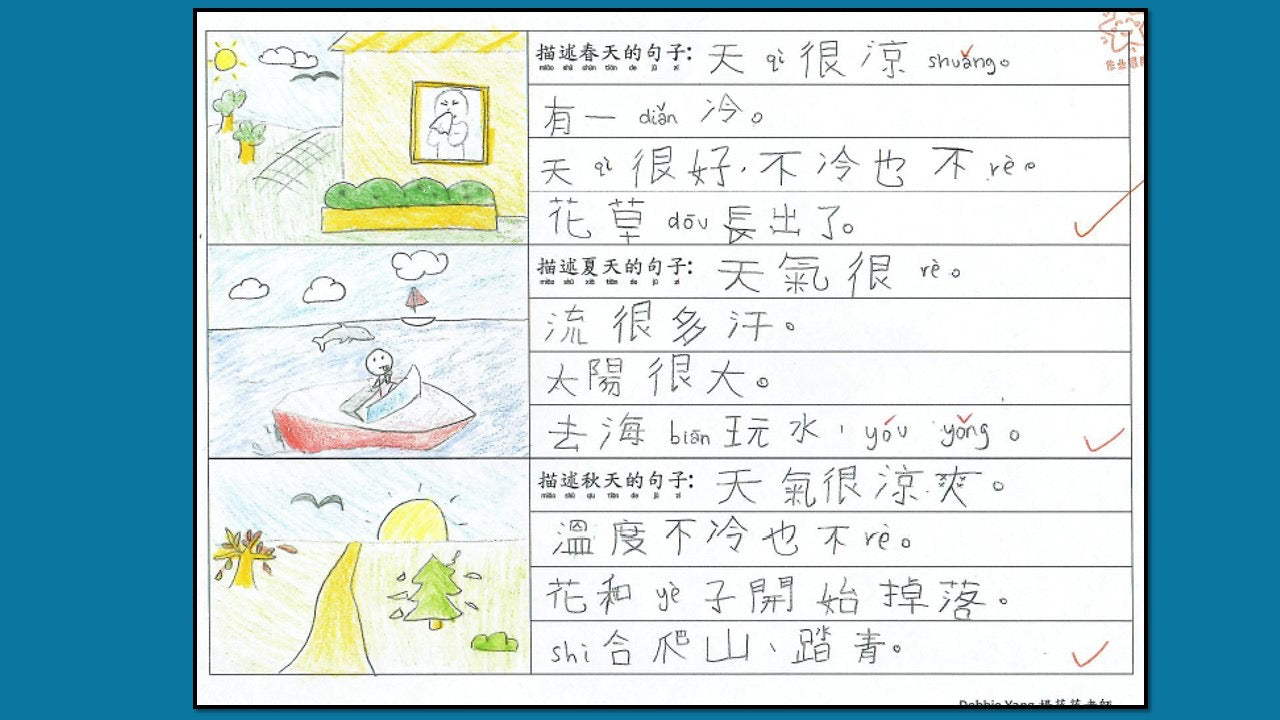 描述春天的句子: 天 qì 很 涼 shuǎng。
miáo shù chūn tiān de jù zi
有一 diǎn 冷。
天 qì 很好,不冷也不 rè。
花草 dōu 長出了。
描述夏天的句子: 天氣很 rè。
miáo shù xià tiān de jù zi
流很多汗。
太陽很大。
去海 biān 玩水,yóu yǒng。
描述秋天的句子: 天氣很涼爽。
miáo shù qiu tiān de jù zi
溫度不冷也不 rè。
花和 yè 子開始掉落。
shì 合爬山、踏青。
Debbie Yang 楊 老師